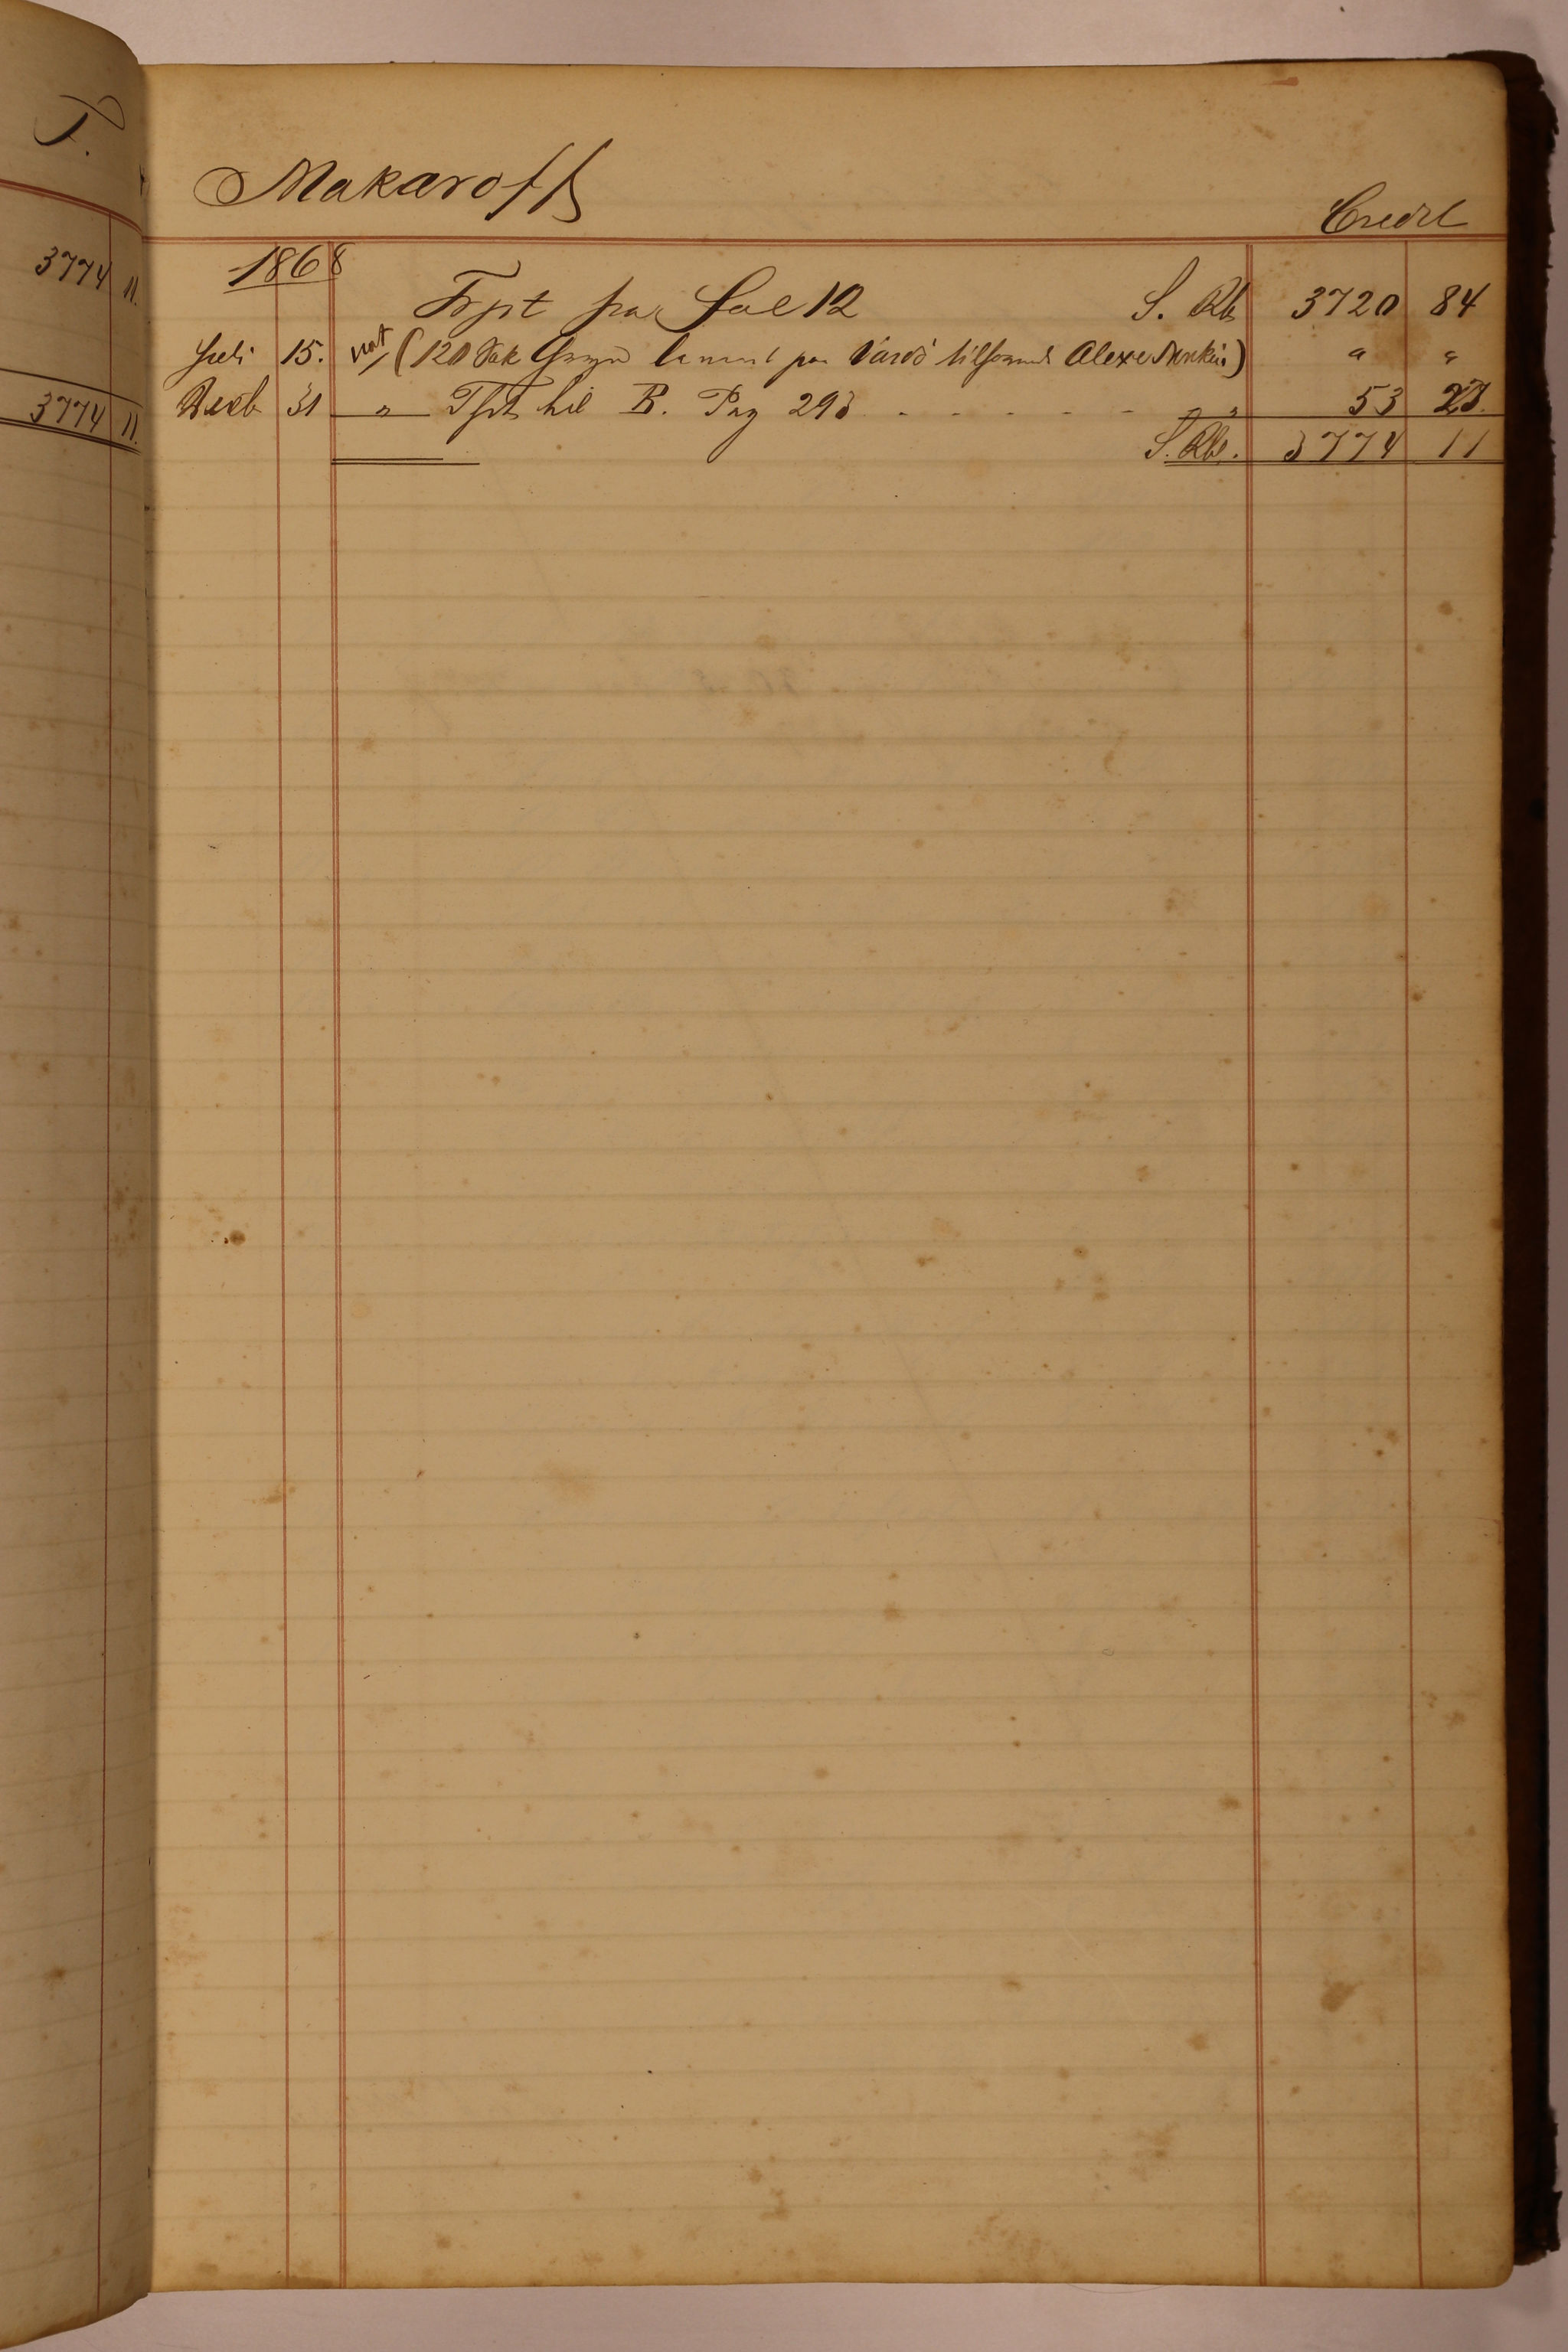 T.
3774 11.
3774 11.
Makaroff
Credit
1868
Trpt fra Fol 12 S. Rb 3720 84
Juli 15. not (120 Sæk Gryn paa Vardö tilhørende Alexe) " "
Decb 31 " Tpt til R. Pag 293 - - - - - " " 53 27.
S. Rbl. 3774 11